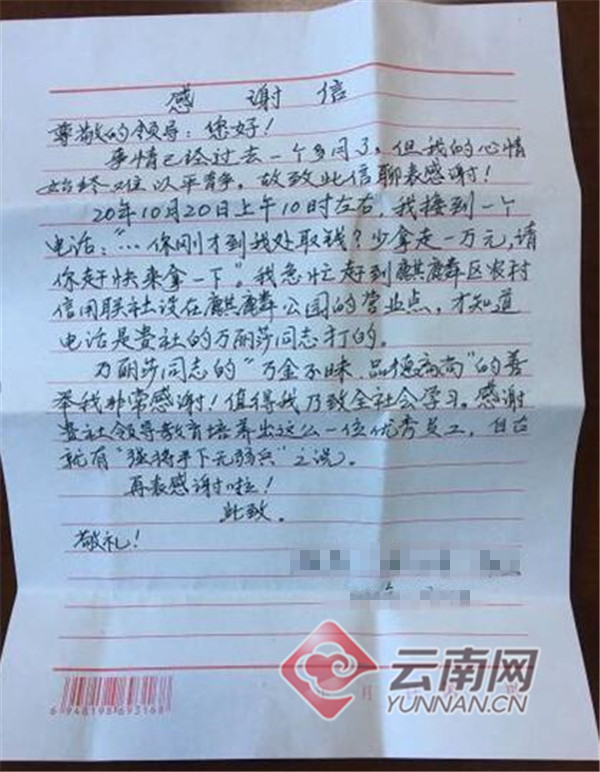 感谢信
尊敬的领导：您好！
事情已经过去一个多月了，但我的心情
始终难以平静。故致此信聊表感谢！
20年10月20日上午10时左右，我接到一个
电话："…你刚才到我处取钱？少拿走一万元，请
你赶快来拿一下"。我急忙赶到麒麟区农村
信用联社设在麒麟公园的营业点，才知道
电话是贵社的万丽莎同志打的。
万丽莎同志的"万金不昧、品德高尚"的善
举我非常感谢！值得我乃致全社会学习。感谢
贵社领导教育培养出这么一位优秀员工，自古
就有"强将手下无弱兵"之说。
再表感谢啦！
此致。
敬礼！
云南网
YUNNAN.CN
月
6948198693168